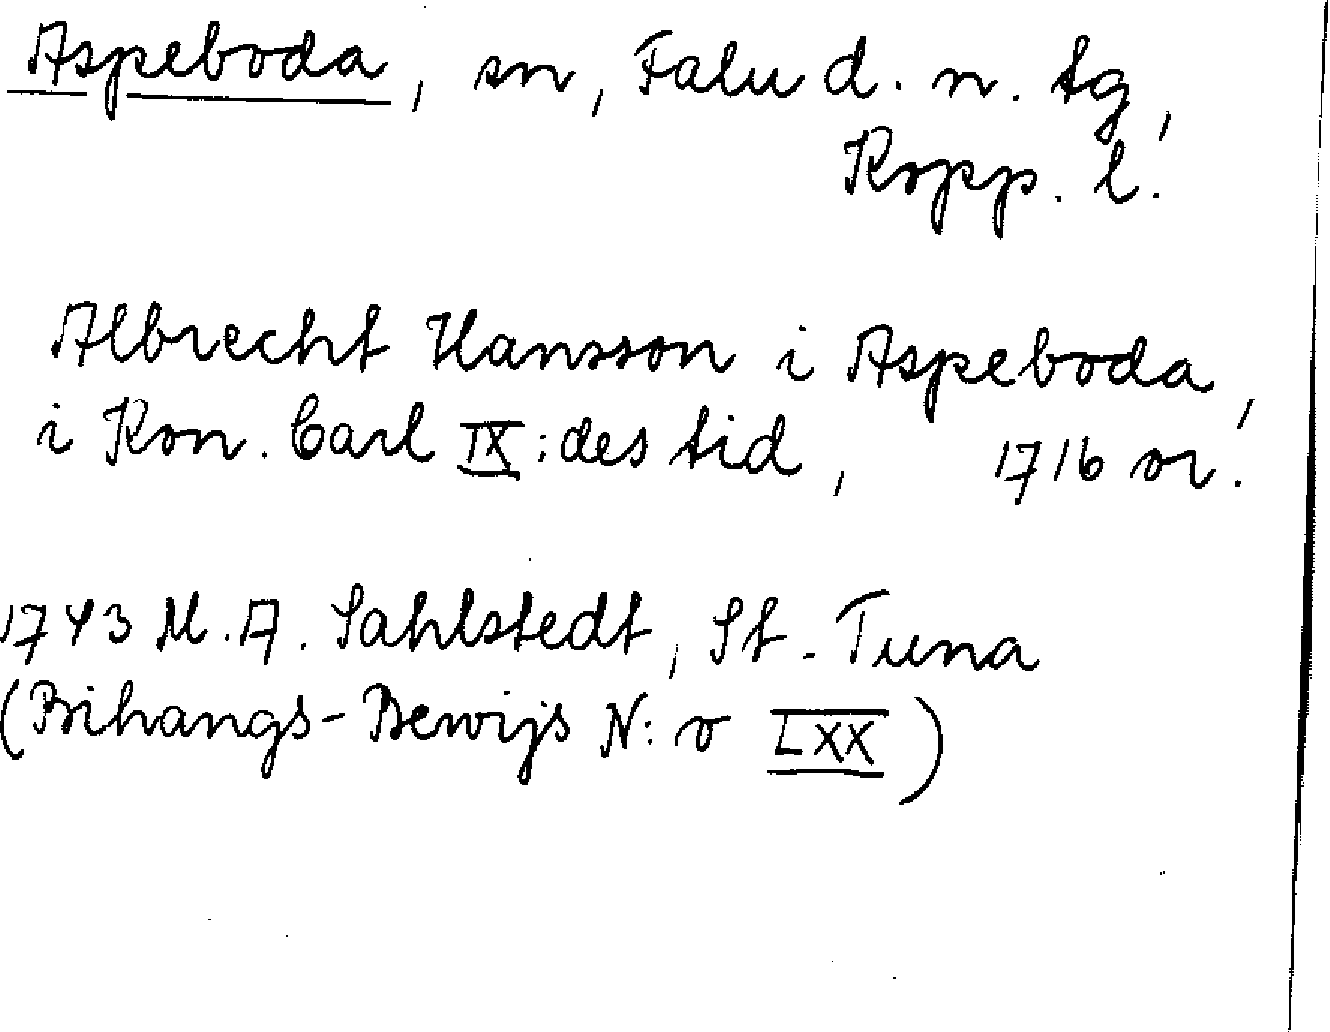 Aspeboda, sn, Falu d. n. tg,
Kopp. l.
Albrecht Hansson i Aspeboda,
i Kon. Carl IX:des tid, 1716 or.
1743 M.A. Sahlstedt, St. Tuna
(Bihangs-Bewijs N:o LXX)